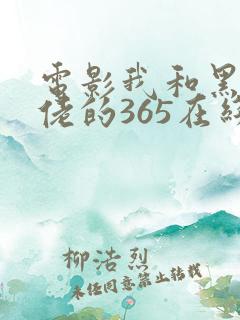 电影我和黑
佬的365在线
柳浩烈
未经同意禁止转载